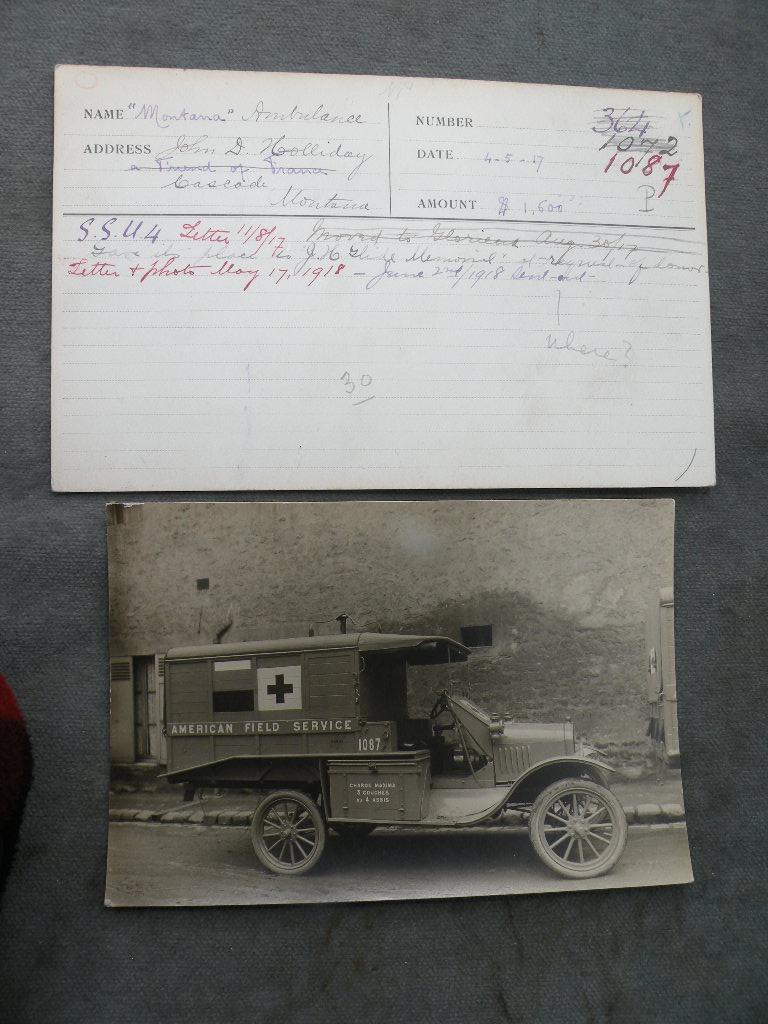 NAME "Montana" Ambulance
ADDRESS John D. Holliday
a Friend of France
Cascade
Montana
NUMBER 364
1072
1087
DATE 4-5-17
P
AMOUNT $ 1,600
S.S.U.4 Letter 11/8/17 Moved to Glorieux Aug. 30/17
Gave its place to J.H. Memorial at request of donor
Letter + photo May 17, 1918 - June 2nd/1918 Sent out -
Where?
30
AMERICAN FIELD SERVICE
1087
CHARGE MAXIMA
3 COUCHÉS
OU 4 ASSIS